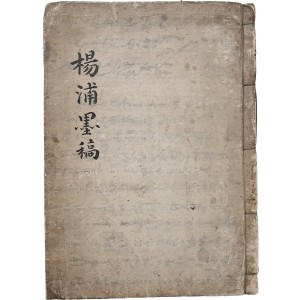 楊浦墨稿